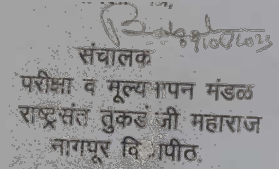 संचालक
परीक्षा व मूल्यमापन मंडळ
राष्ट्रसंत तुकडोजी महाराज
नागपूर विद्यापीठ